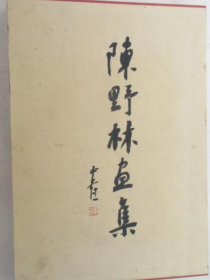 陳野林画集